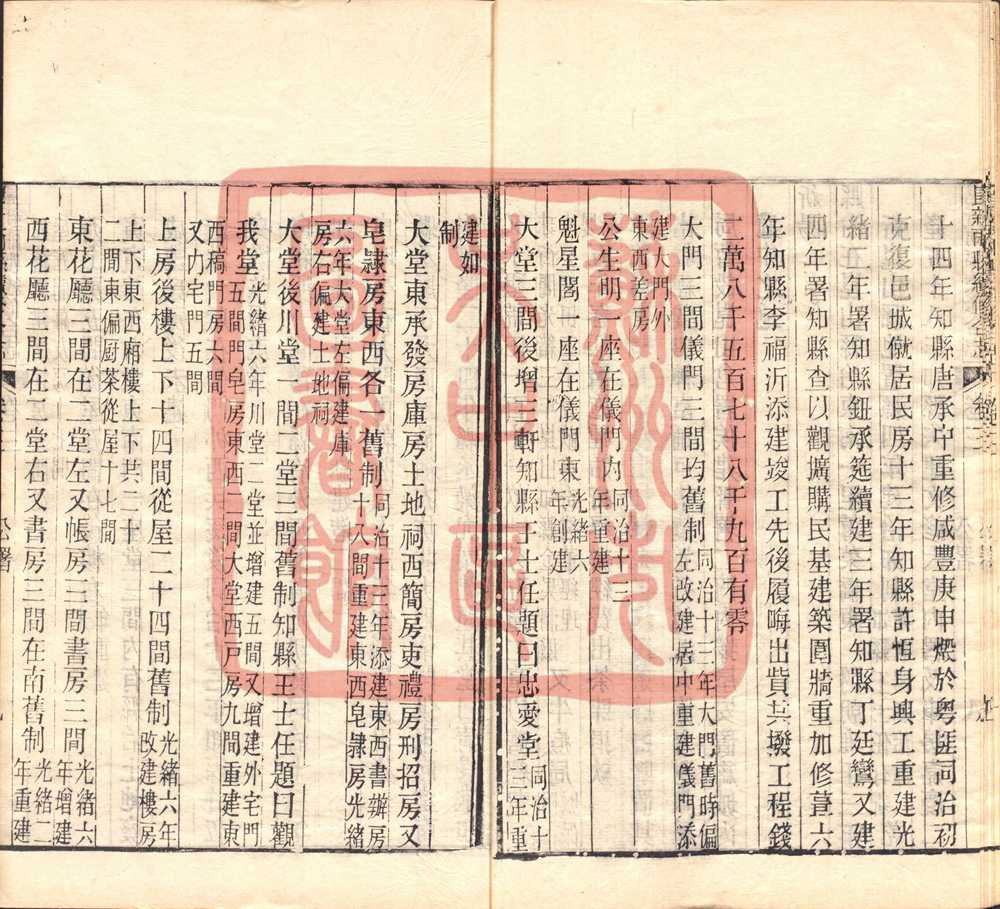 十四年知縣唐承中重修咸豐庚申燬於粤匪同治初
克復邑城僦居民房十三年知縣許恆身興工重建光
緒二年署知縣鈕承筵續建三年署知縣丁廷鸞又建
四年署知縣查以觀擴購民基建築圍牆重加修葺六
年知縣李福沂添建竣工先後履晦出貲其撥工程錢
二萬八千五百七十八千九百有零
大門三間儀門三間均舊制同治十三年大門舊時偏左改建居中重建儀門添
建大門外東西差房
公生明一座在儀門內同治十三年重建
魁星閣一座在儀門東光緒六年創建
大堂三間後增三軒知縣王士任題曰忠愛堂同治十三年重
建如制
大堂東承發房庫房土地祠西簡房吏禮房刑招房又
皂隸房東西各一舊制同治十三年添建東西書辦房十八間重建東西皂隸房光緒
六年大堂左偏建庫房右偏建土地祠
大堂後川堂一間二堂三間舊制知縣王士任題曰觀
我堂光緒六年川堂二堂並增建五間又增建外宅門五間門皂房東西二間大堂西戸房九間重建東
西稿門房六間又內宅門五間
上房後樓上下十四間從屋二十四間舊制光緒六年改建樓房
上下東西廂樓上下共二十二間東偏厨茶從屋十七間
東花廳三間在二堂左又帳房三間書房三間光緒六年增建
西花廳三間在二堂右又書房三間在南舊制光緒二年重建